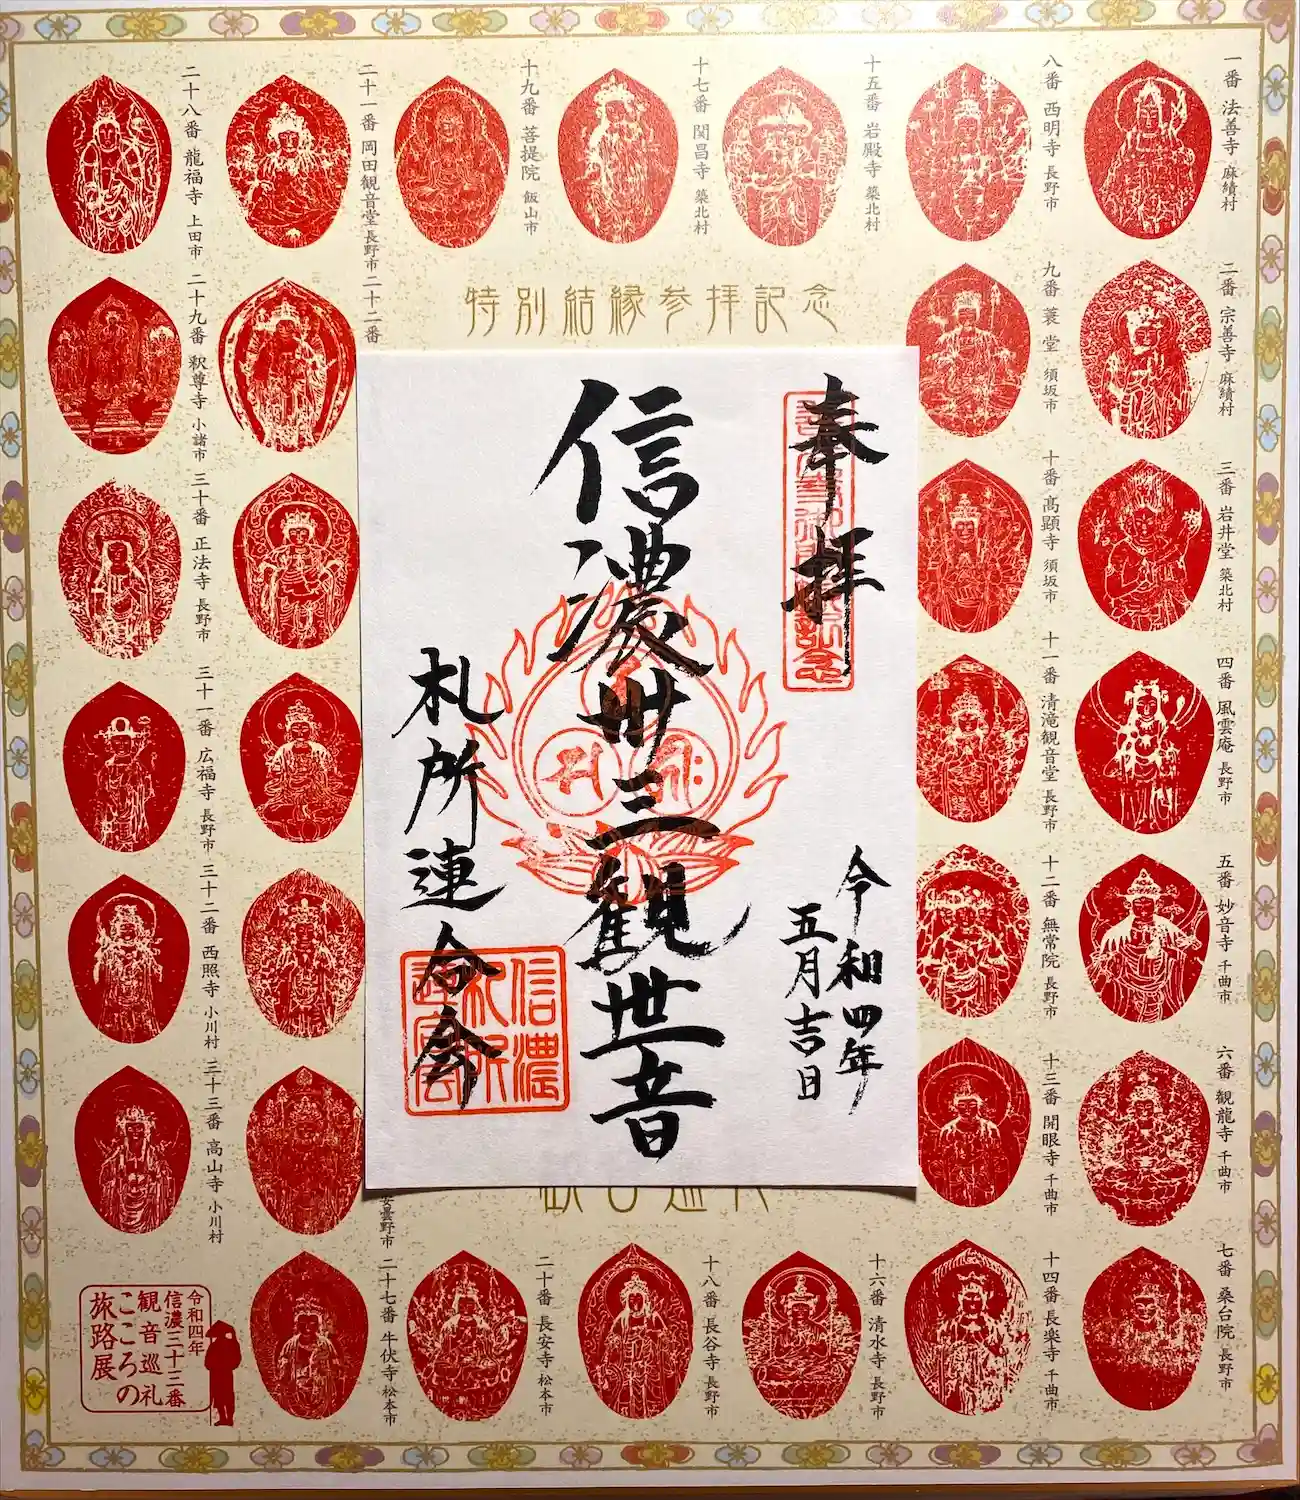 一番 法善寺 麻績村
二番 宗善寺 麻績村
三番 岩井堂 築北村
四番 風雲庵 長野市
五番 妙音寺 千曲市
六番 観龍寺 千曲市
七番 桑台院 長野市
八番 西明寺 長野市
九番 蓑堂 須坂市
十番 高顕寺 須坂市
十一番 清滝観音堂 長野市
十二番 無常院 長野市
十三番 開眼寺 千曲市
十四番 長楽寺 千曲市
十五番 岩殿寺 築北村
十六番 清水寺 長野市
十七番 関昌寺 築北村
十八番 長谷寺 長野市
十九番 菩提院 飯山市
二十番 長安寺 松本市
二十一番 岡田観音堂 長野市
二十二番
安曇野市
二十七番 牛伏寺 松本市
二十八番 龍福寺 上田市
二十九番 釈尊寺 小諸市
三十番 正法寺 長野市
三十一番 広福寺 長野市
三十二番 西照寺 小川村
三十三番 高山寺 小川村
特別結縁参拝記念
奉拝
令和四年
五月吉日
信濃卅三観世音
札所連合会
信濃
札所
連合会
令和四年
信濃三十三番
観音巡礼
こころの
旅路展